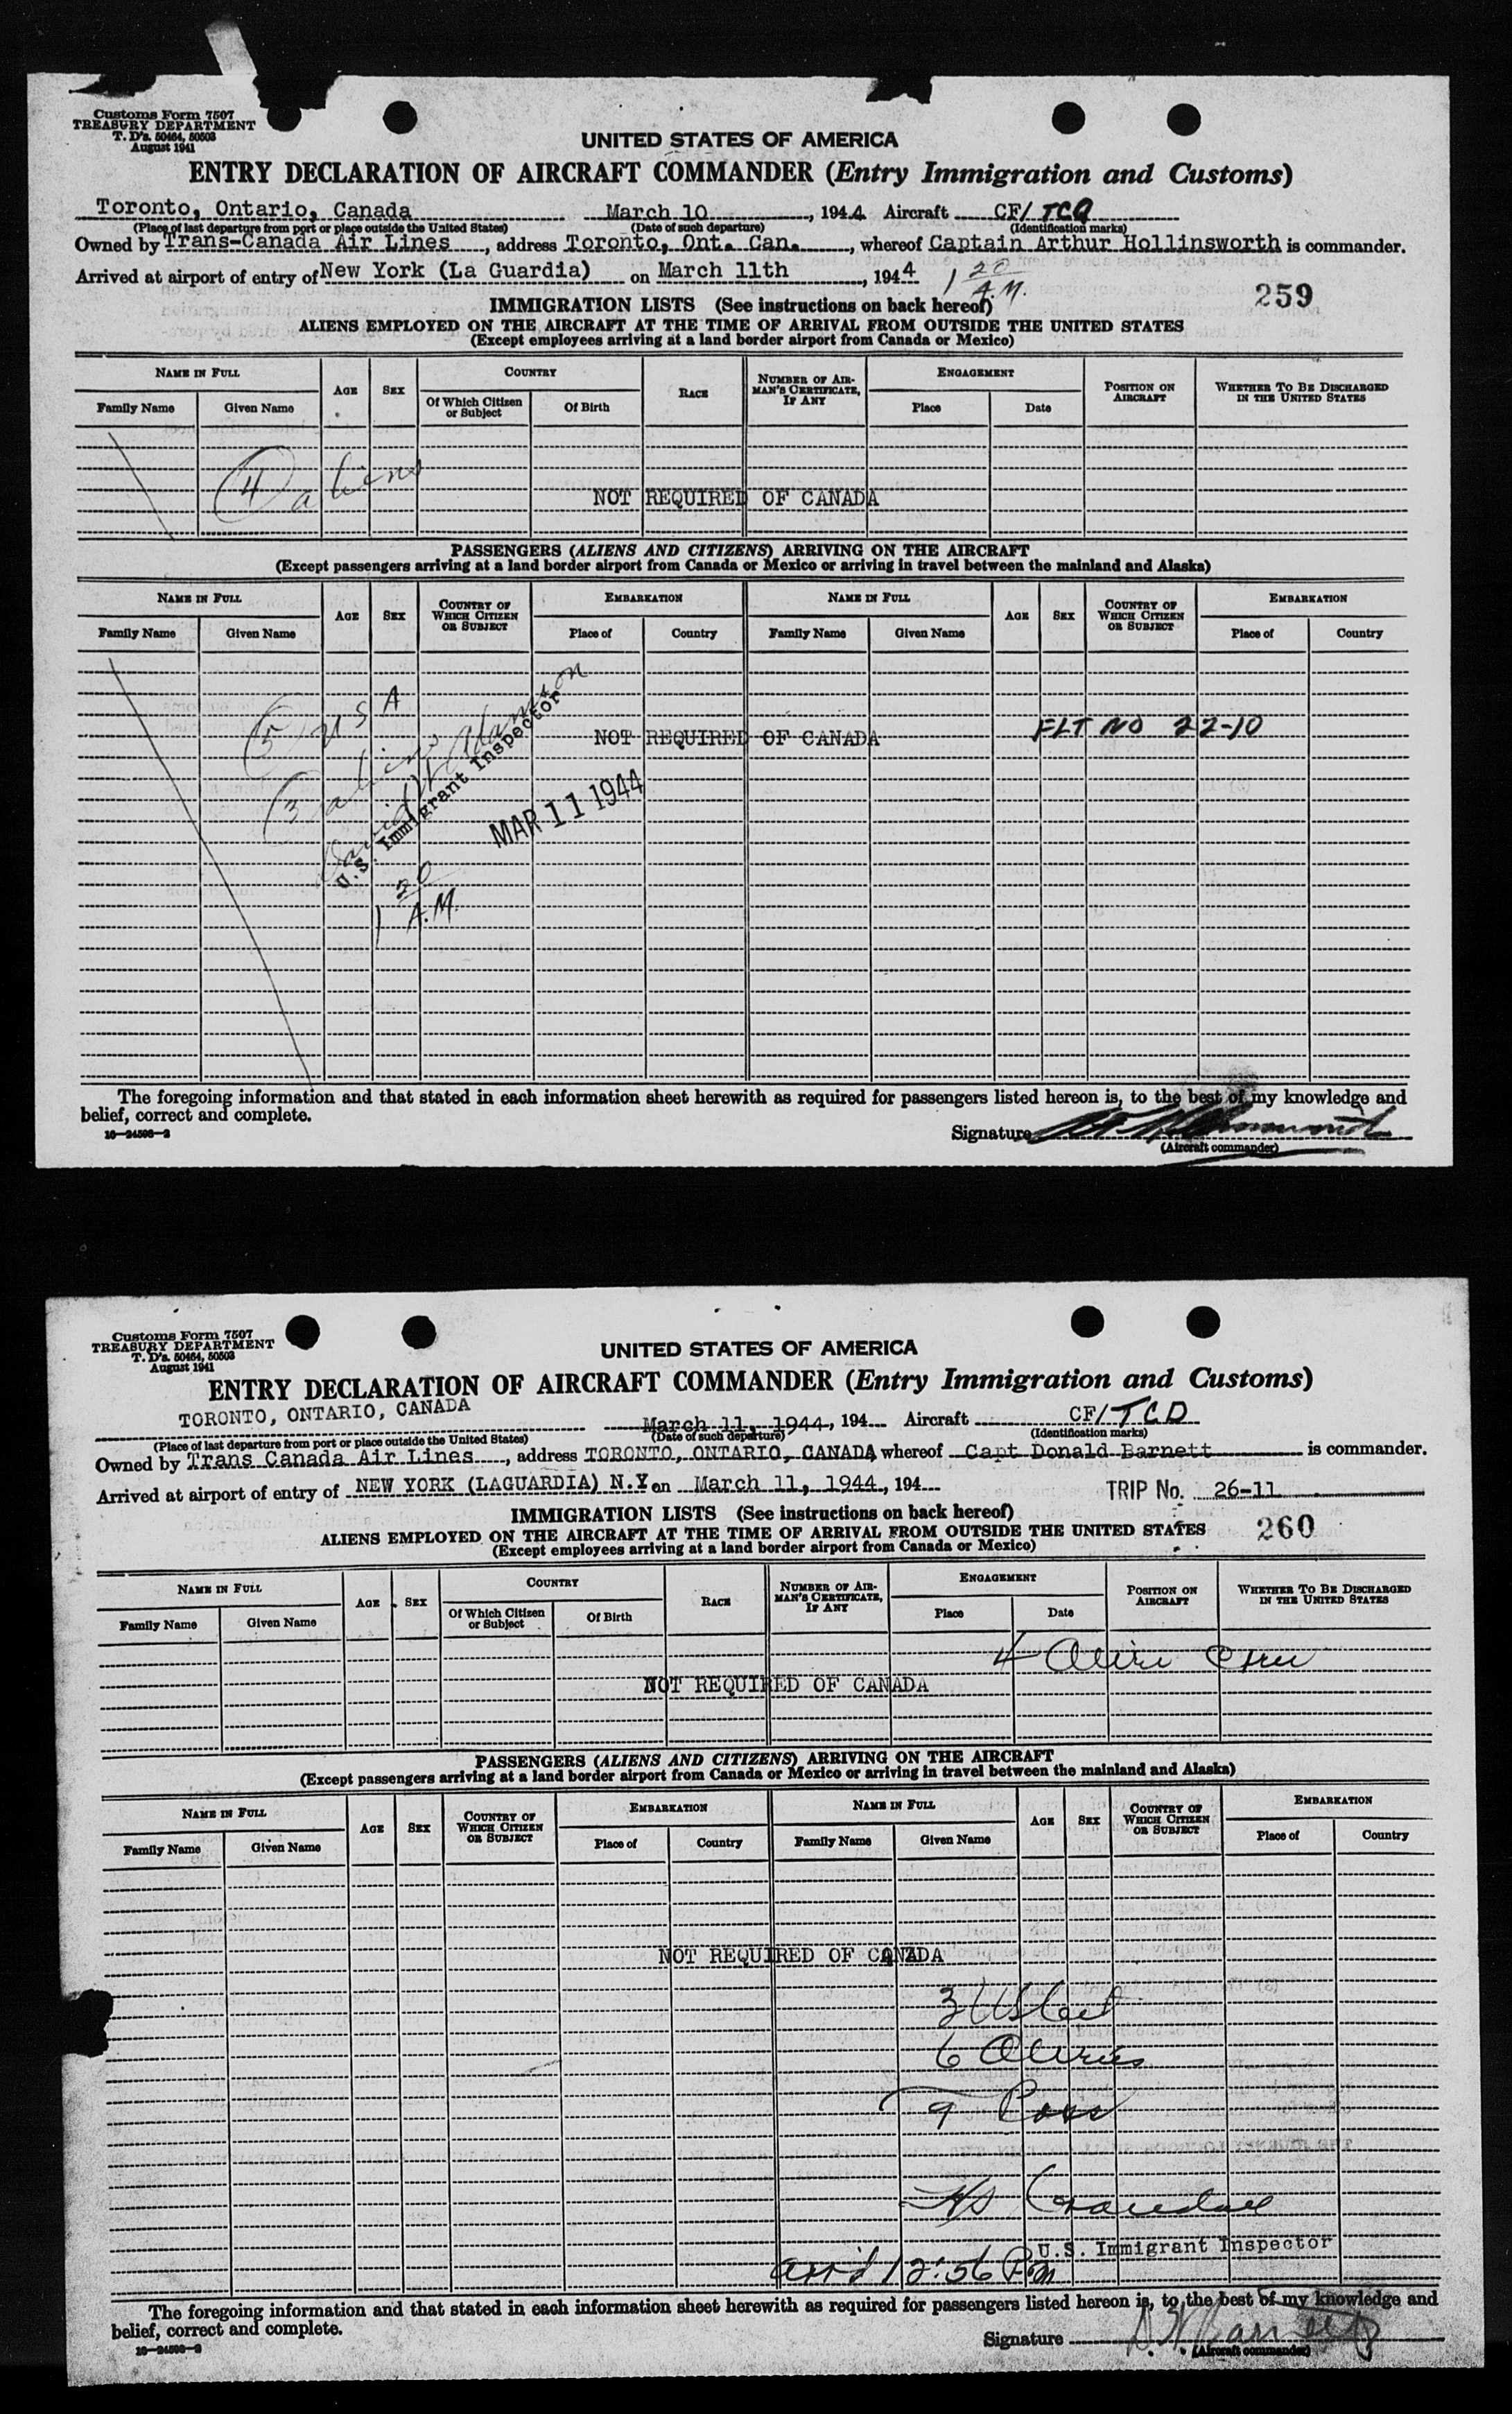 Customs Form 7507
TREASURY DEPARTMENT
T. D's. 50464, 50503
August 1941
UNITED STATES OF AMERICA
ENTRY DECLARATION OF AIRCRAFT COMMANDER (Entry Immigration and Customs)
Toronto, Ontario, Canada March 10, 1944 Aircraft CF/TCQ
(Place of last departure from port or place outside the United States) (Date of such departure) (Identification marks)
Owned by Trans-Canada Air Lines, address Toronto, Ont. Can., whereof Captain Arthur Hollinsworth is commander.
Arrived at airport of entry of New York (La Guardia) on March 11th, 1944 1 20 A.M.
259
IMMIGRATION LISTS (See instructions on back hereof)
ALIENS EMPLOYED ON THE AIRCRAFT AT THE TIME OF ARRIVAL FROM OUTSIDE THE UNITED STATES
(Except employees arriving at a land border airport from Canada or Mexico)
NAME IN FULL AGE SEX COUNTRY RACE NUMBER OF AIRMAN'S CERTIFICATE, IF ANY ENGAGEMENT POSITION ON AIRCRAFT WHETHER TO BE DISCHARGED IN THE UNITED STATES
Family Name Given Name Of Which Citizen or Subject Of Birth Place Date
4 aliens
NOT REQUIRED OF CANADA
PASSENGERS (ALIENS AND CITIZENS) ARRIVING ON THE AIRCRAFT
(Except passengers arriving at a land border airport from Canada or Mexico or arriving in travel between the mainland and Alaska)
NAME IN FULL AGE SEX COUNTRY OF WHICH CITIZEN OR SUBJECT EMBARKATION NAME IN FULL AGE SEX COUNTRY OF WHICH CITIZEN OR SUBJECT EMBARKATION
Family Name Given Name Place of Country Family Name Given Name Place of Country
5 USA
NOT REQUIRED OF CANADA FLT NO 22-10
3 aliens
U.S. Immigrant Inspector
MAR 11 1944
1 20 A.M.
The foregoing information and that stated in each information sheet herewith as required for passengers listed hereon is, to the best of my knowledge and
belief, correct and complete.
16—24598-2
Signature
(Aircraft commander)
Customs Form 7507
TREASURY DEPARTMENT
T. D's. 50464, 50503
August 1941
UNITED STATES OF AMERICA
ENTRY DECLARATION OF AIRCRAFT COMMANDER (Entry Immigration and Customs)
TORONTO, ONTARIO, CANADA March 11, 1944, 194 Aircraft CF/TCD
(Place of last departure from port or place outside the United States) (Date of such departure) (Identification marks)
Owned by Trans Canada Air Lines, address TORONTO, ONTARIO, CANADA, whereof Capt Donald Barnett is commander.
Arrived at airport of entry of NEW YORK (LAGUARDIA) N.Y on March 11, 1944, 194 TRIP No. 26-11
IMMIGRATION LISTS (See instructions on back hereof)
260
ALIENS EMPLOYED ON THE AIRCRAFT AT THE TIME OF ARRIVAL FROM OUTSIDE THE UNITED STATES
(Except employees arriving at a land border airport from Canada or Mexico)
NAME IN FULL AGE SEX COUNTRY RACE NUMBER OF AIRMAN'S CERTIFICATE, IF ANY ENGAGEMENT POSITION ON AIRCRAFT WHETHER TO BE DISCHARGED IN THE UNITED STATES
Family Name Given Name Of Which Citizen or Subject Of Birth Place Date
4 Alien Crew
NOT REQUIRED OF CANADA
PASSENGERS (ALIENS AND CITIZENS) ARRIVING ON THE AIRCRAFT
(Except passengers arriving at a land border airport from Canada or Mexico or arriving in travel between the mainland and Alaska)
NAME IN FULL AGE SEX COUNTRY OF WHICH CITIZEN OR SUBJECT EMBARKATION NAME IN FULL AGE SEX COUNTRY OF WHICH CITIZEN OR SUBJECT EMBARKATION
Family Name Given Name Place of Country Family Name Given Name Place of Country
NOT REQUIRED OF CANADA
3 US Cit
6 Aliens
9 Pass
U.S. Immigrant Inspector
arr'd 12:56 Pm
The foregoing information and that stated in each information sheet herewith as required for passengers listed hereon is, to the best of my knowledge and
belief, correct and complete.
16—24598-2
Signature D. Barnett
(Aircraft commander)